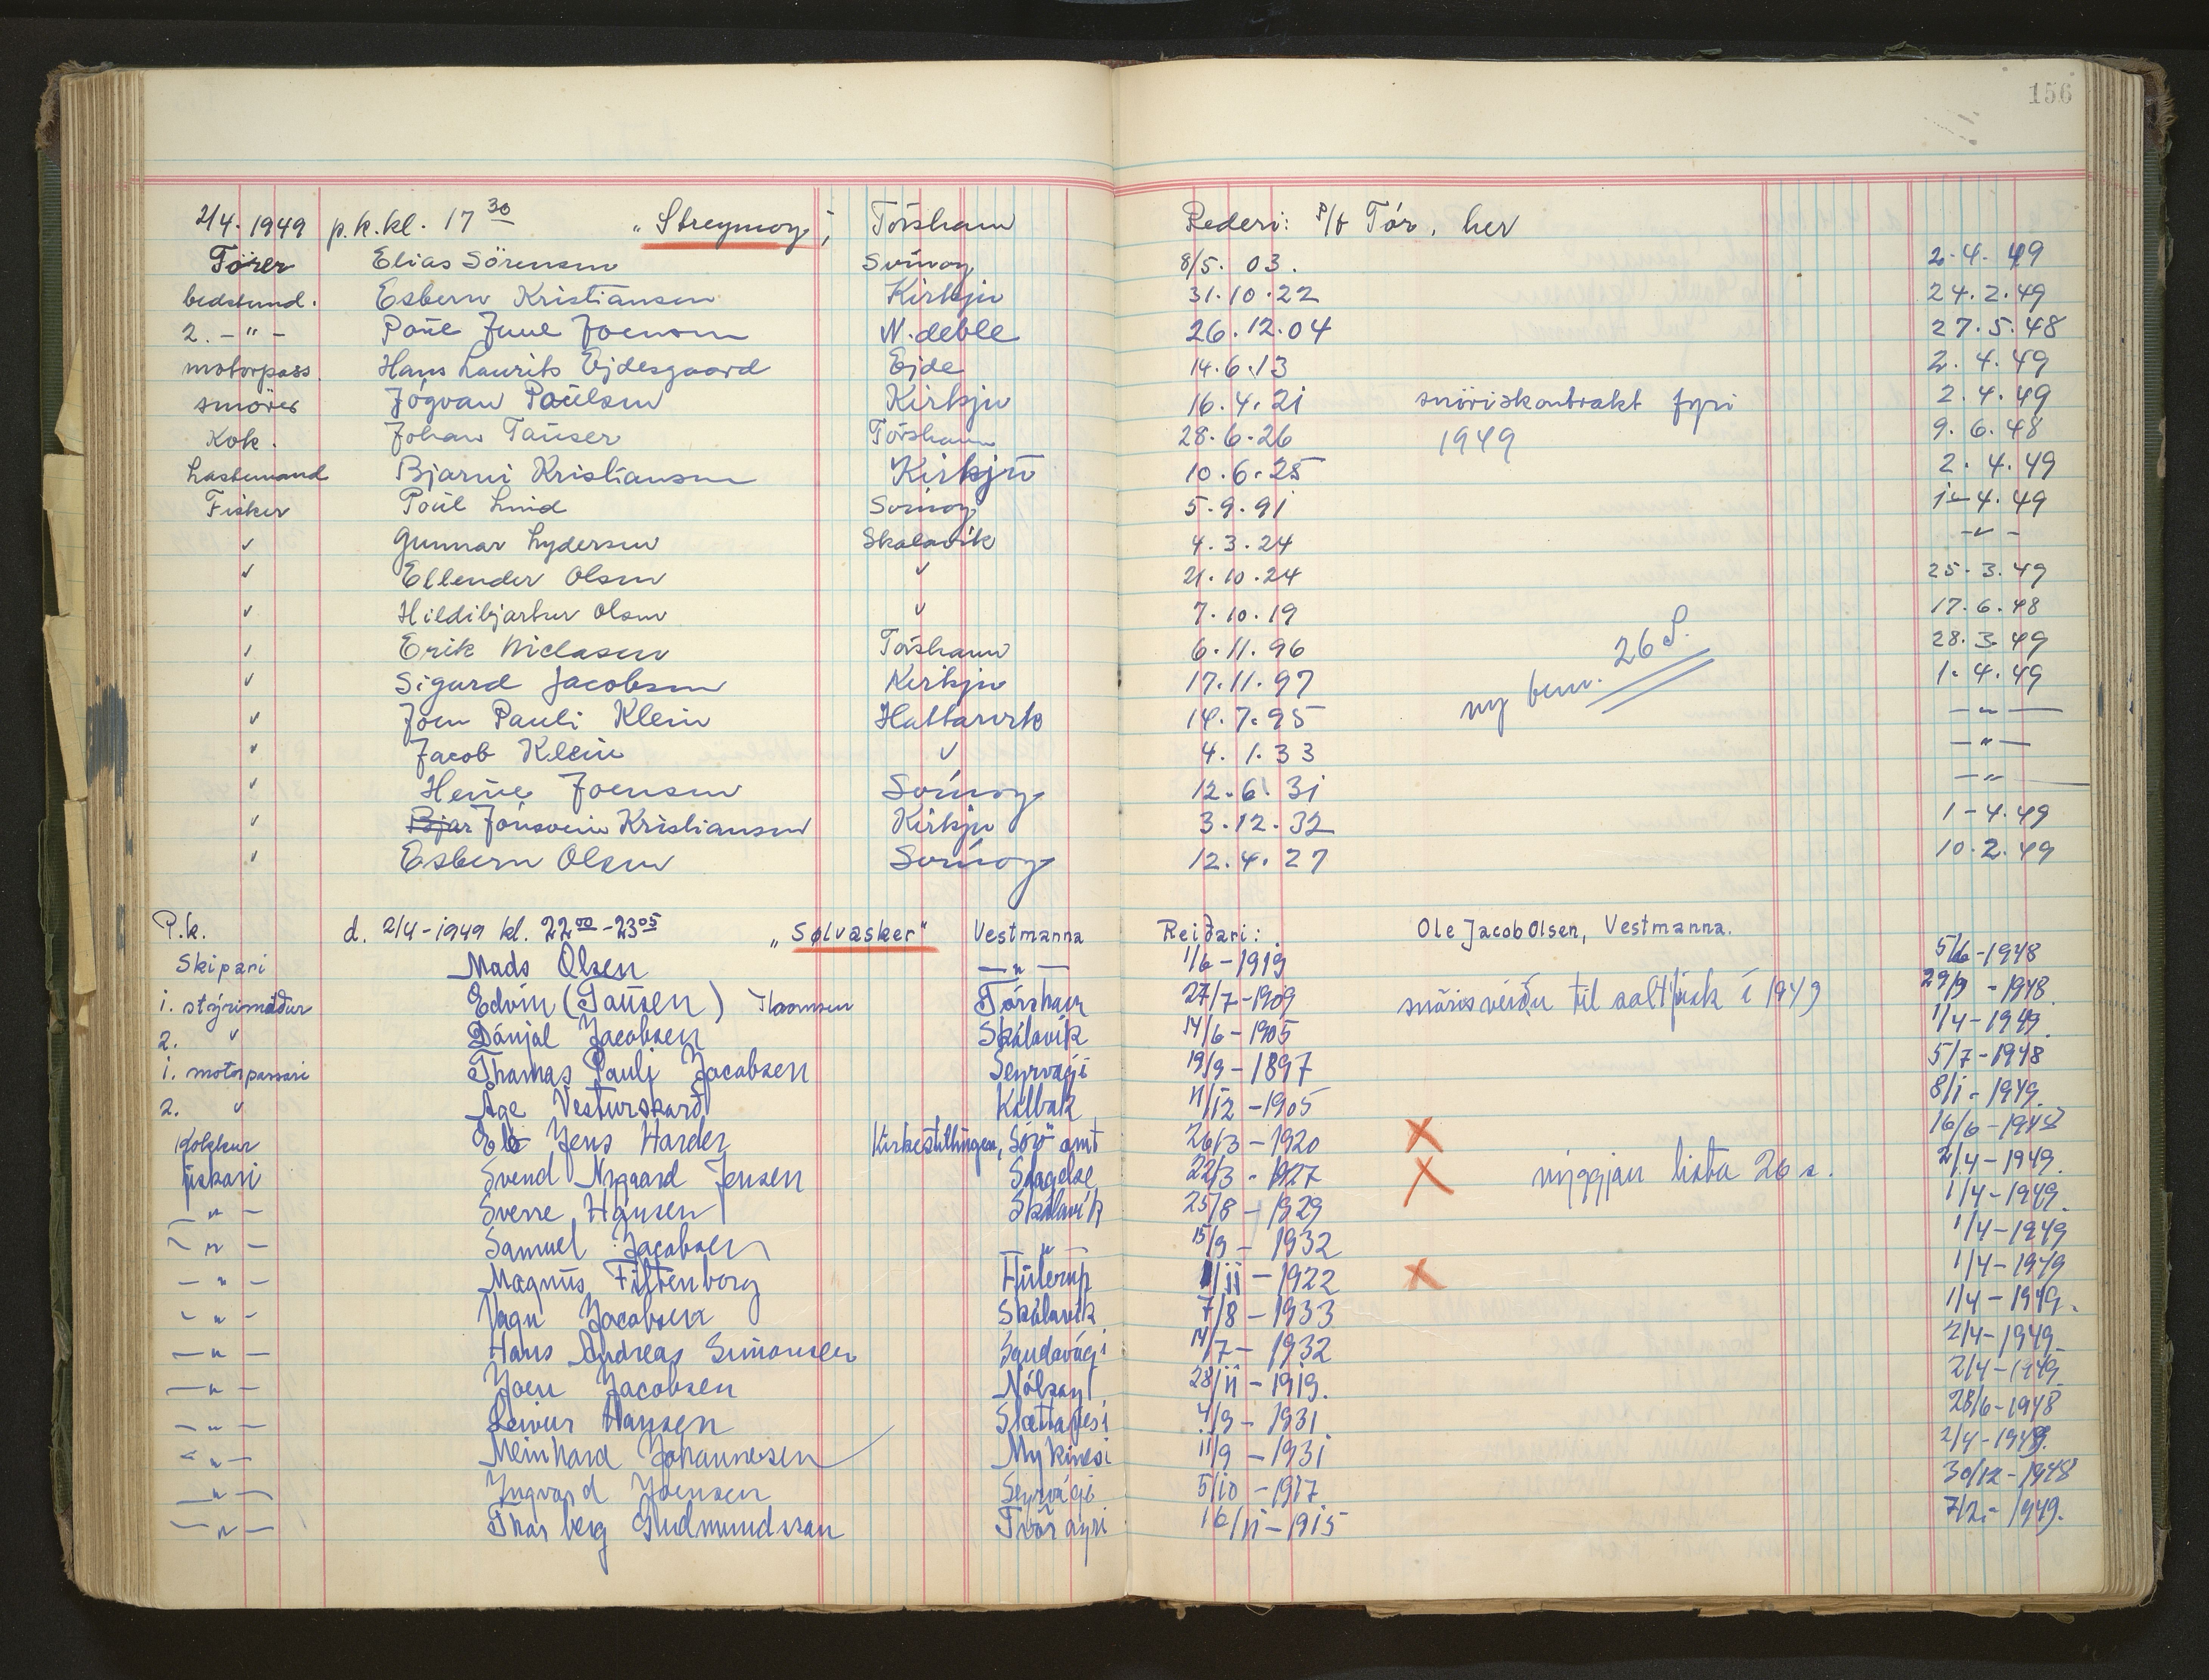 156
2/4. 1949 p.k. kl. 17 30 "Streymoy", Tórshavn Rederi: P/f Tór, her
Förer Elias Sörensen Svínoy 8/5. 03. 2.4. 49
bedstmd. Esbern Kristiansen Kirkju 31.10.22 24.2.49
2. -"- Poul Juul Joensen N.deble 26.12.04 27.5.48
motorpass. Hans Laurits Ejdesgaard Ejde 14.6.13 2.4.49
smörer Jógvan Paulsen Kirkju 16.4.21 snöriskontrakt fyri 2.4.49
Kok. Johan Tausen Tórshavn 28.6.26 1949 9.6.48
Lastemand Bjarni Kristiansen Kirkju 10.6.25 2.4.49
Fisker Poul Lind Svínoy 5.9.91 1-4.49
" Gunnar Lydersen Skalavik 4.3.24 -"-
" Ellender Olsen " 21.10.24 25.3.49
" Hildibjartur Olsen " 7.10.19 17.6.48
" Erik Niclasen Tórshavn 6.11.96 26 S. 28.3.49
" Sigurd Jacobsen Kirkju 17.11.97 ny bem. 1.4.49
" Joen Pauli Klein Hattarvik 14.7.95 -"-
" Jacob Klein " 4.1.33 -"-
" Heine Joensen Svínoy 12.6.31 -"-
" Bjar Jónsvein Kristiansen Kirkju 3.12.32 1-4.49
" Esbern Olsen Svínoy 12.4.27 10.2.49
P.k. d. 2/4-1949 kl. 22 00 - 23 05 "Sølvasker" Vestmanna Reiðari: Ole Jacob Olsen, Vestmanna.
Skipari Mads Olsen -"- 1/6-1919 5/6-1948
1. stýrimaður Edvin (Tausen) Thomsen Tórshavn 27/7-1909 snørisveiðu til saltfisk í 1949 29/9-1948
2. " Dánjal Jacobsen Skálavík 14/6-1905 1/4-1949.
1. motorpassari Thomas Pauli Jacobsen Seyrvági 19/9-1897 5/7-1948
2. " Åge Vesturskarð Kálbak 11/12-1905 8/1-1949.
Kokkur Eb Jens Harder Kirkestillingen, Sorø amt 26/3-1920 X 16/6-1948
fiskari Svend Nygaard Jensen Slagelse 22/3-1927 X nýggjan lista 26 s. 2/4-1949.
-"- Sverre Hansen Skálavík 25/8-1929 1/4-1949.
-"- Samuel Jacobsen -"- 15/9-1932 1/4-1949
-"- Magnus Filtenborg 1/11-1922 X 1/4-1949
-"- Vagn Jacobsen Skálavík 7/8-1933 1/4-1949.
-"- Hans Andreas Simonsen Sandavági 14/7-1932 2/4-1949.
-"- Joen Jacobsen Nólsoy 28/11-1919. 2/4-1949.
-"- Leivur Hansen Slættanesi 4/9-1931 28/6-1948
-"- Meinhard Johannesen Mykinesi 11/9-1931 2/4-1949.
-"- Yngvard Joensen Seyrvági 5/10-1917 30/12-1948
-"- Thorberg Gudmundsson Tvöroyri 16/11-1915 7/2-1949.